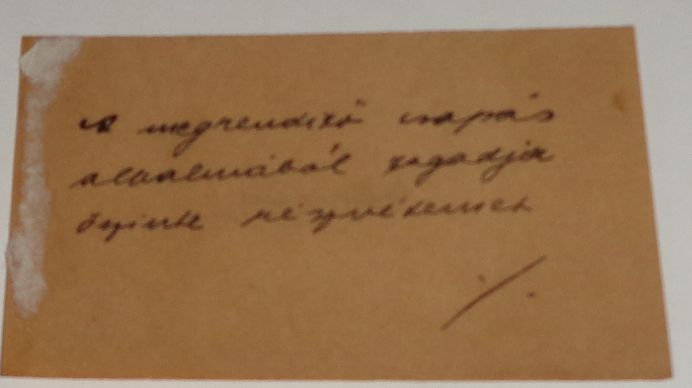 A megrendítő csapás
alkalmából fogadják
őszinte részvétemet
./.